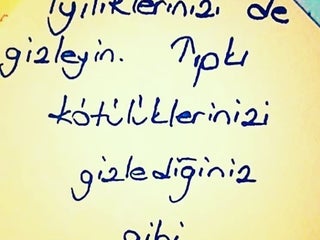 iyiliklerinizi de
gizleyin. Tıpkı
kötülüklerinizi
gizlediğiniz
gibi